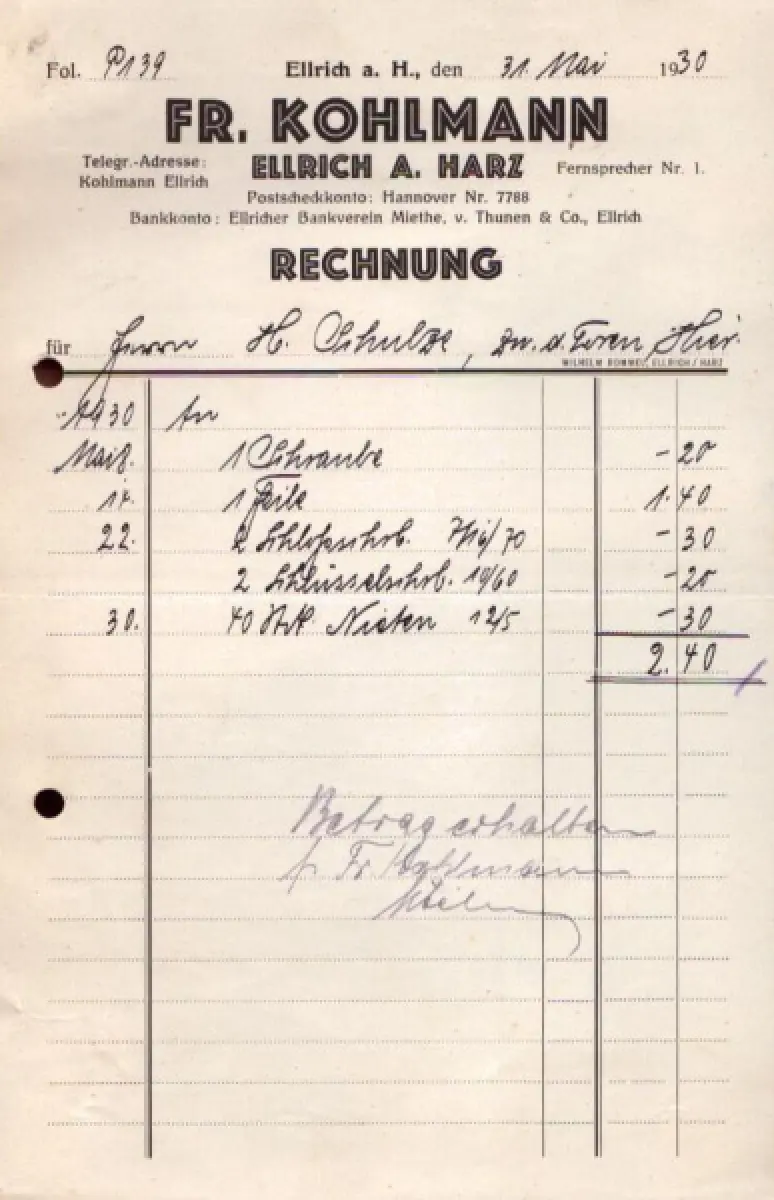 Fol. P139 Ellrich a. H., den 31. Mai 1930
FR. KOHLMANN
Telegr.-Adresse: ELLRICH A. HARZ Fernsprecher Nr. 1.
Kohlmann Ellrich
Postscheckkonto: Hannover Nr. 7788
Bankkonto: Ellricher Bankverein Miethe, v. Thunen & Co., Ellrich
RECHNUNG
für Herrn H. Schulze, Hier.
WILHELM ROMMEL, ELLRICH / HARZ
1930 An
Mai 8. 1 Schraube – 20
17. 1 Feile 1.40
22. 2 Schloßschrb. 7/16/70 – 30
2 Schlüsselschrb. 10/60 – 20
30. 40 Stk. Nieten 12/5 – 30
2.40
Betrag erhalten
p. Fr. Kohlmann